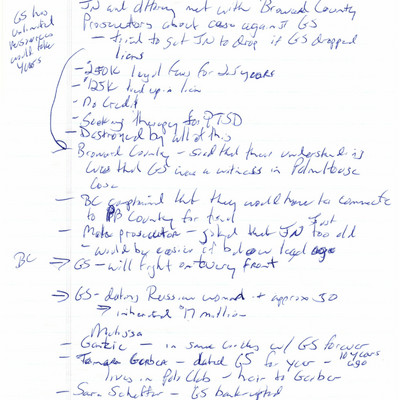 GS has
unlimited
resources
would take
years
JN and attorney met with Broward County
Prosecutors about case against GS
- tried to get JN to drop if GS dropped
liens
- 250K legal fees for 2.5 years
- 125K tied up in lien
- No Credit
- Seeking therapy for PTSD
- Destroyed by all of this
- Broward County - said that their understanding
was that GS was a witness in Palm House
Case
- BC complained that they would have to commute
to PB County for trial
- Male prosecutor - joked that JN too old
- would be easier if below legal age
BC → GS - will fight on every front
→ GS - dating Russian woman + approx 30
→ inherited $17 million
Melissa
- in same circles w/ GS forever
- dated GS for year - 10 years
ago
lives in Polo Club - heir to Gerber
- Sara - GS bankrupted